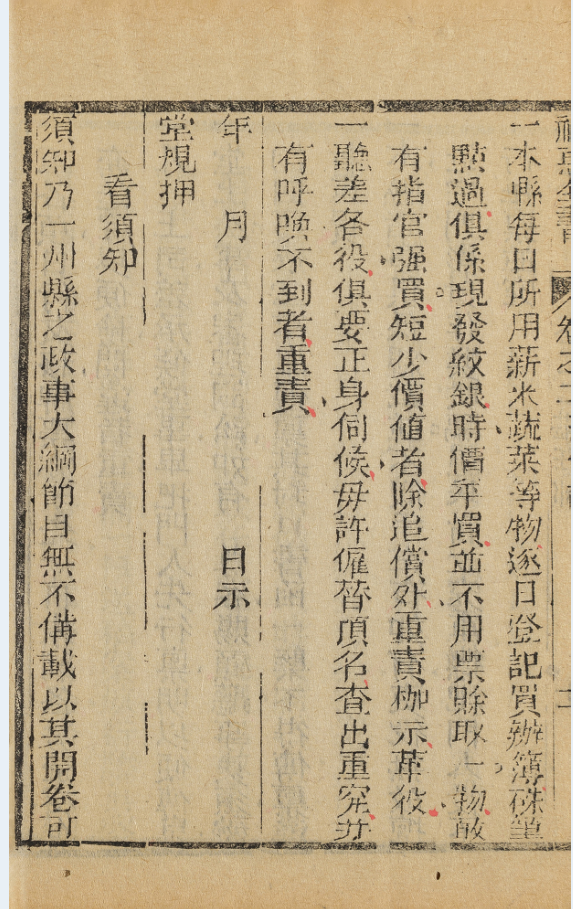 福惠全書 卷之二
一本縣每日所用薪米蔬菜等物逐日登記買辦簿硃筆
點過俱係現發紋銀時價平買並不用票賒取一物敢
有指官强買短少價値者除追償外重責枷示革役
一聽差各役俱要正身伺候毋許僱替頂名查出重究并
有呼喚不到者重責
年 月 日示
堂規押
看須知
須知乃一州縣之政事大綱節目無不備載以其開卷可